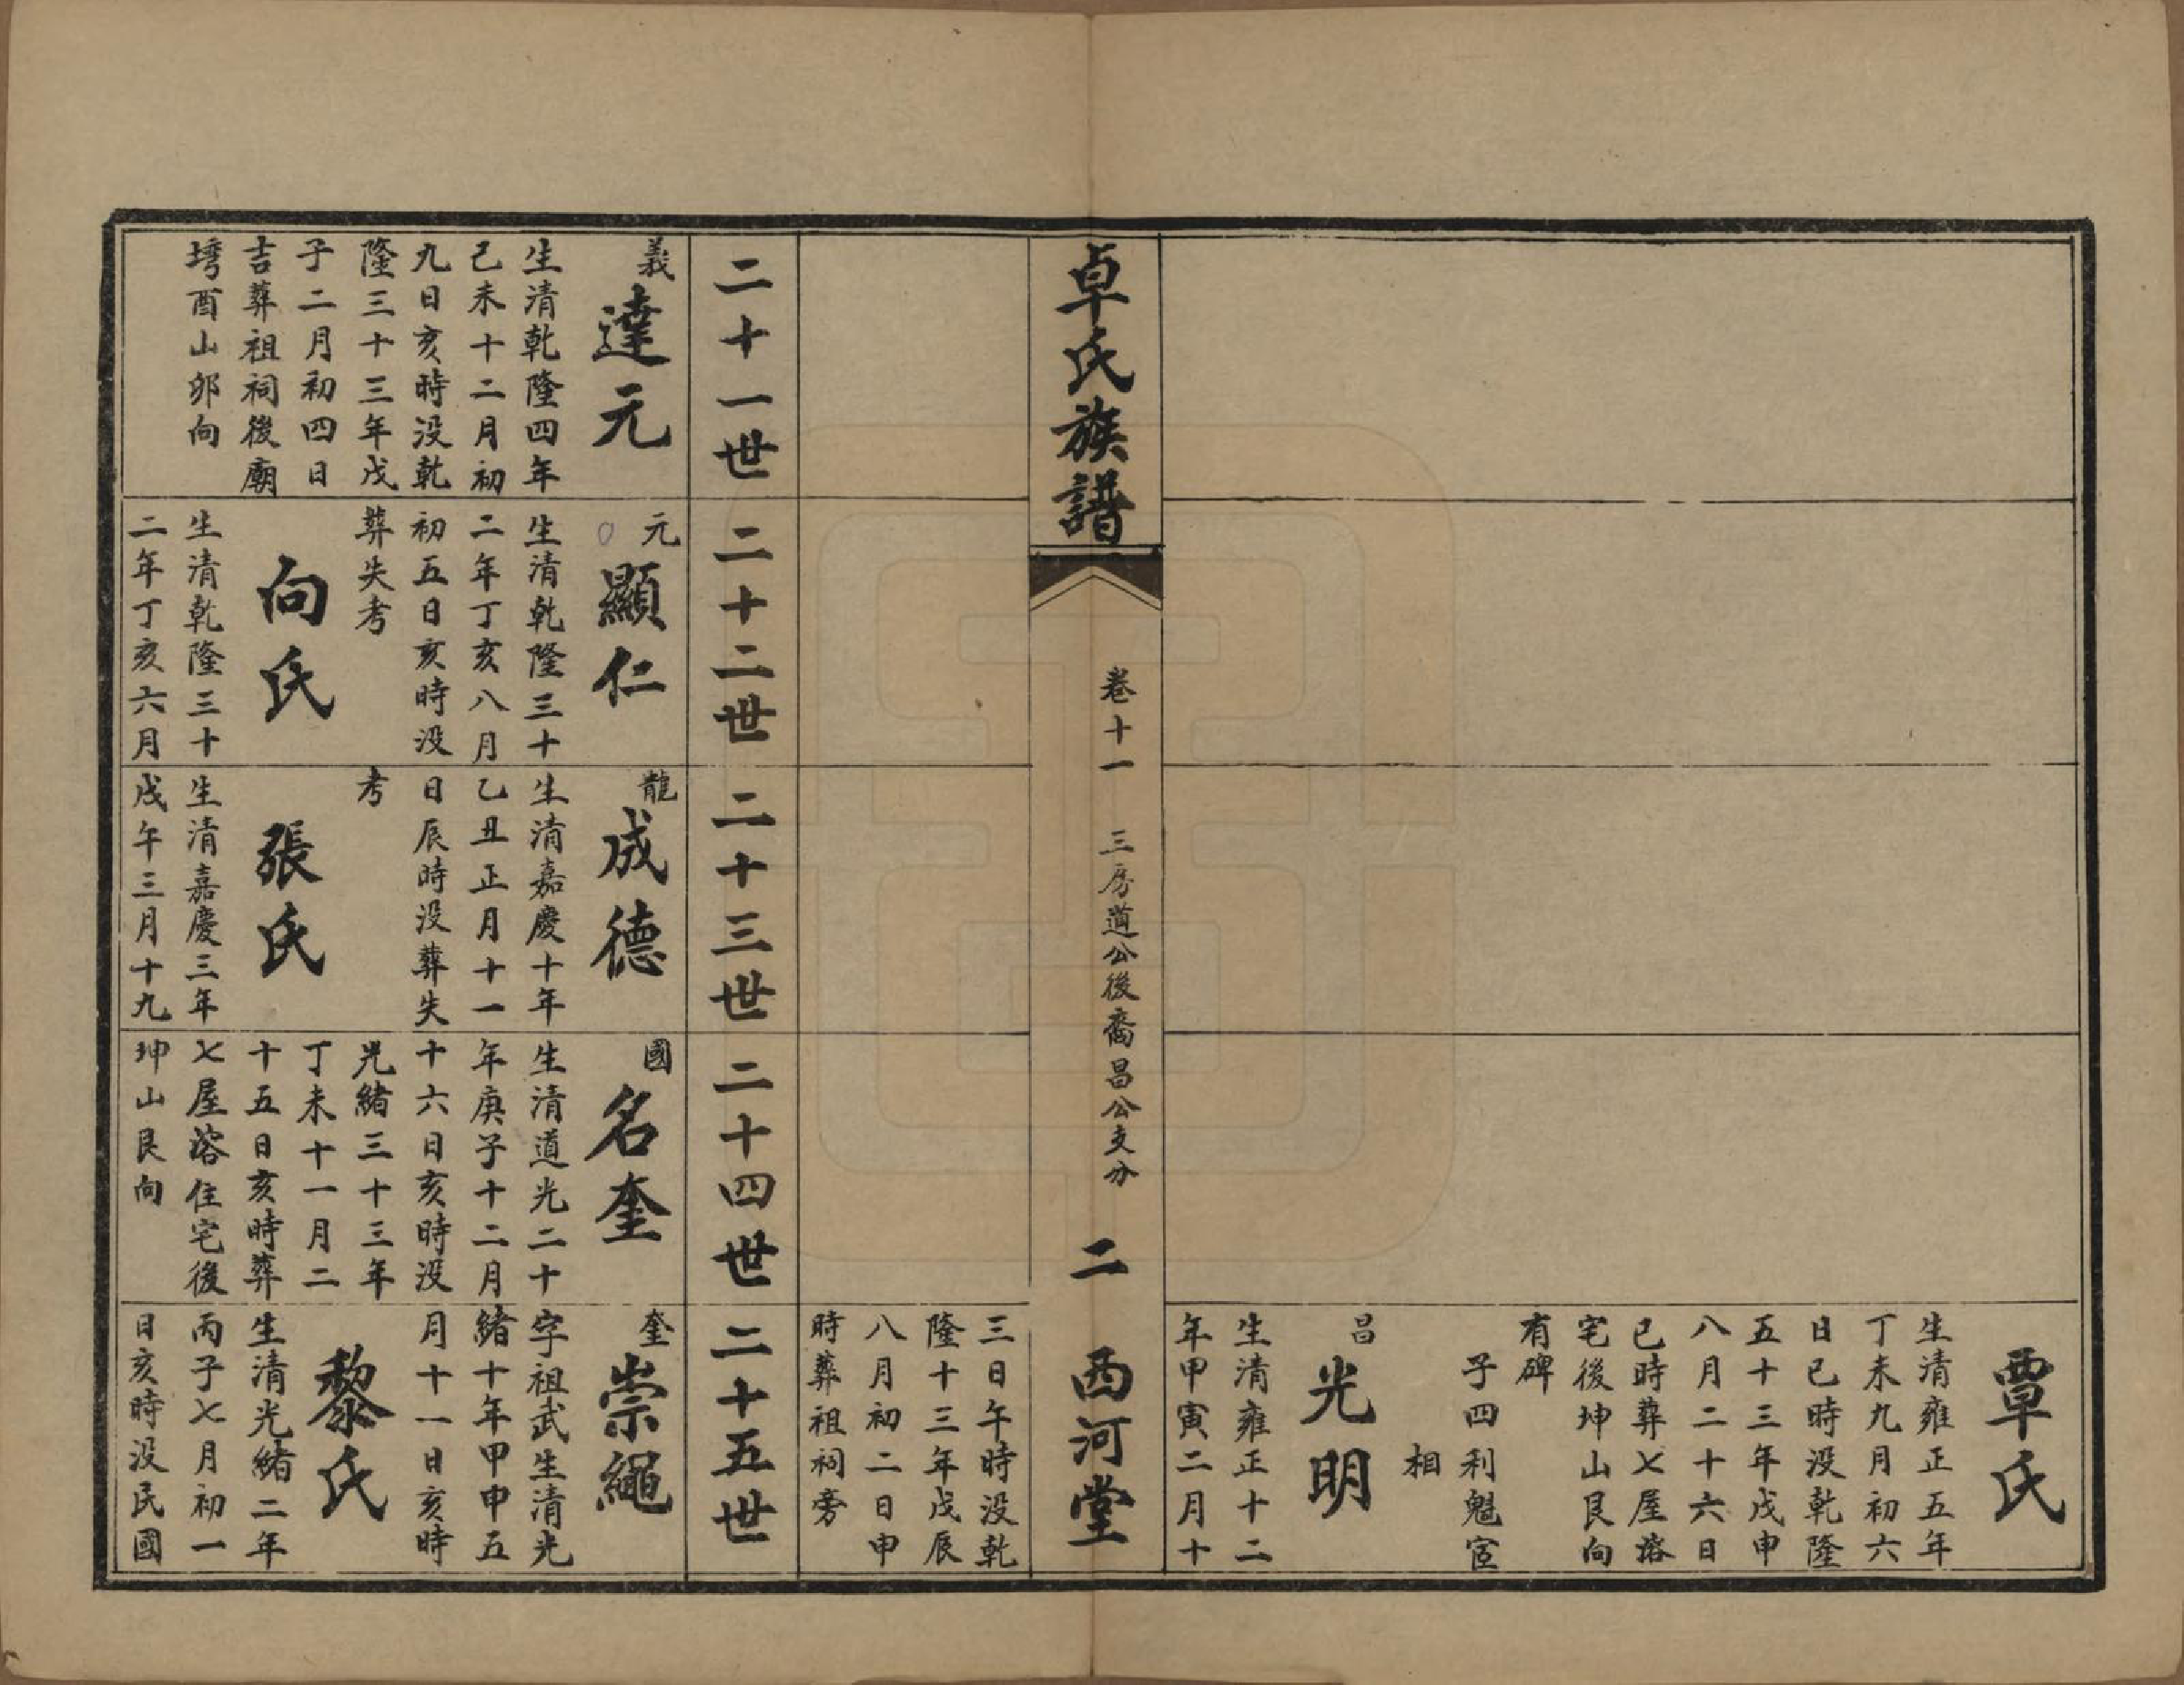 覃氏
生清雍正五年
丁未九月初六
日巳時没乾隆
五十三年戊申
八月二十六日
巳時葬七屋溶
宅後坤山艮向
有碑
子四利魁宦
相
昌
光明
生清雍正十二
年甲寅二月十
卓氏族譜
卷十一
三房道公後裔昌公支分
二
西河堂
三日午時没乾
隆十三年戊辰
八月初二日申
時葬祖祠旁
二十一世
二十二世
二十三世
二十四世
二十五世
義
達元
生清乾隆四年
己未十二月初
九日亥時没乾
隆三十三年戊
子二月初四日
吉葬祖祠後廟
塆酉山卯向
元
顯仁
生清乾隆三十
二年丁亥八月
初五日亥時没
葬失考
向氏
生清乾隆三十
二年丁亥六月
龍
成德
生清嘉慶十年
乙丑正月十一
日辰時没葬失
考
張氏
生清嘉慶三年
戊午三月十九
國
名奎
生清道光二十
年庚子十二月
十六日亥時没
光緒三十三年
丁未十一月二
十五日亥時葬
七屋溶住宅後
坤山艮向
奎
崇繩
字祖武生清光
緒十年甲申五
月十一日亥時
黎氏
生清光緒二年
丙子七月初一
日亥時没民國